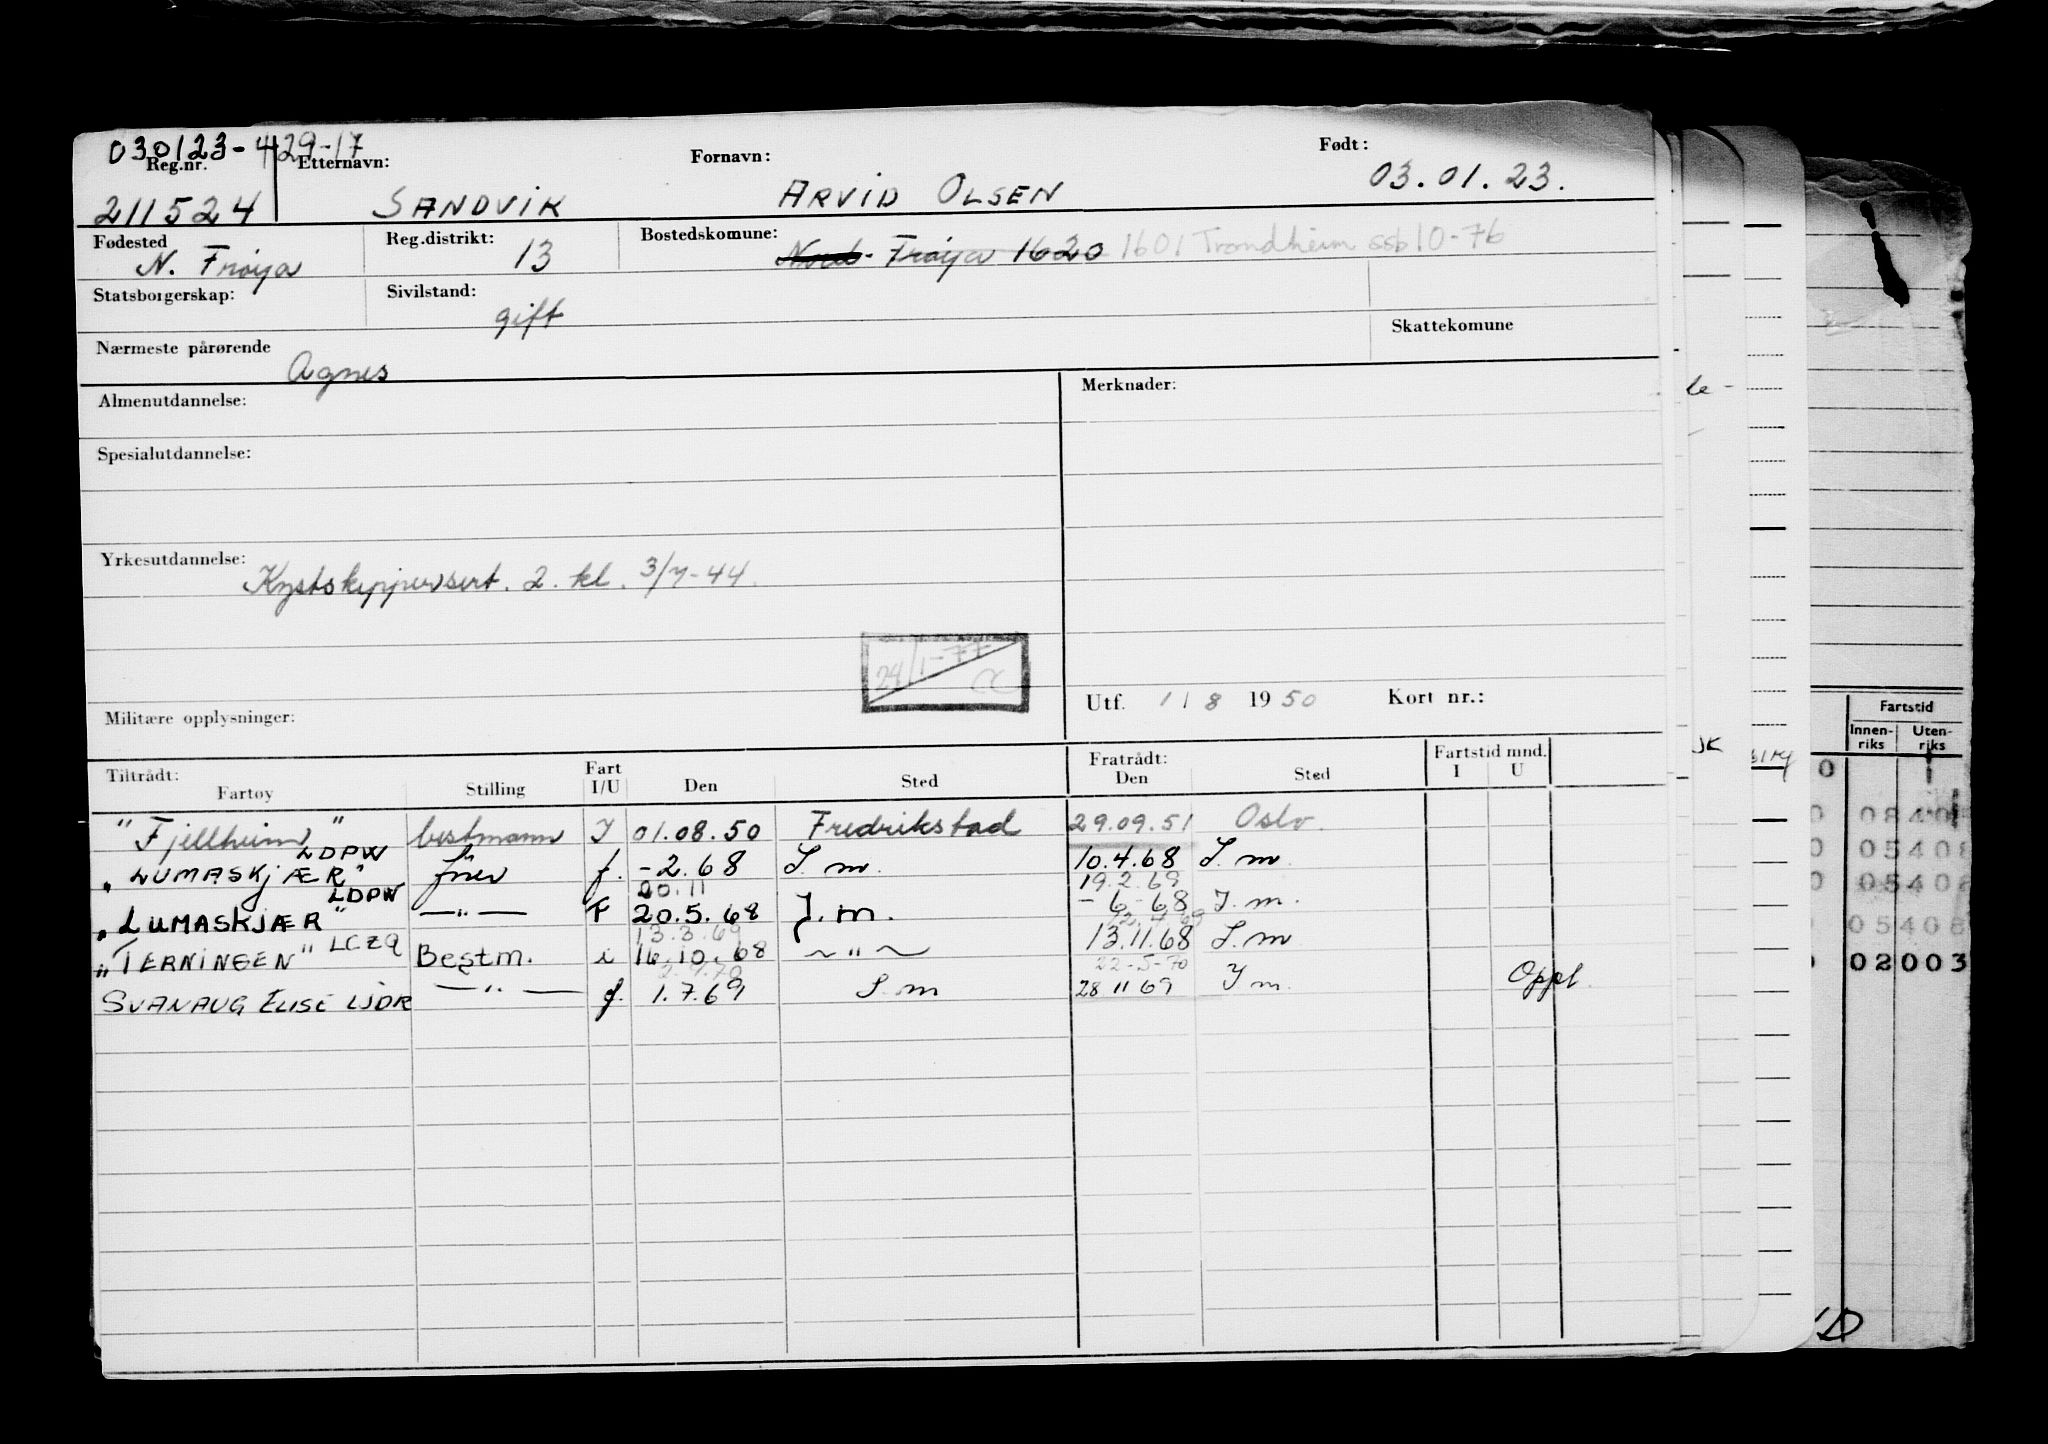 030123-429-17
Reg.nr. Etternavn: Fornavn: Født:
211524 SANDVIK ARVID OLSEN 03.01.23.
Fødested Reg.distrikt: Bostedskomune:
N. Frøya 13 Nord- Frøya 1620 1601 Trondheim ssb 10-76
Statsborgerskap: Sivilstand:
gift
Skattekomune
Nærmeste pårørende
Agnes
Almenutdannelse: Merknader:
Spesialutdannelse:
Yrkesutdannelse:
Kystskippersert. 2. kl. 3/7-44.
24/1-77
Utf. 1/8 1950 Kort nr.:
Militære opplysninger:
Tiltrådt: Fart Fratrådt: Fartstid mnd.
Fartøy Stilling I/U Den Sted Den Sted I U
"Fjellheim" bestmann I 01.08.50 Fredrikstad 29.09.51 Oslo.
LDPW
"LUMASKJÆR" fører f. -2.68 S.m. 10.4.68 S.m.
LDPW 20.11 19.2.69
"LUMASKJÆR" —"— F 20.5.68 I.m. -6-68 I.m.
13.3.69 12.4.69
"TERNINGEN" LCZQ Bestm. i 16.10.68 ~"~ 13.11.68 S.m
2.4.70 22-5-70
SVANAUG ELISE LJDR —"— f. 1.7.69 S.m 28 11 69 I m. Oppl.
Fartstid
Innen-riks Uten-riks
0 1
0 08408
0 05408
0 05408
05408
02003